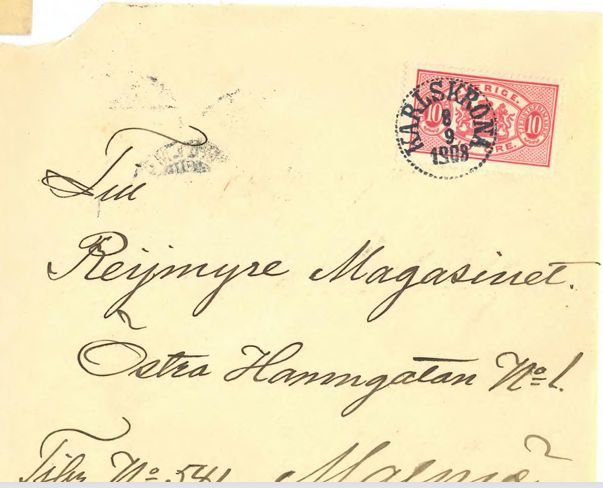 SVERIGE.
10 10
ÖRE.
KARLSKRONA
8
9
1908
Till
Reijmyre Magasinet.
Östra Hamngatan No 1.
Tibr No 541 Malmö